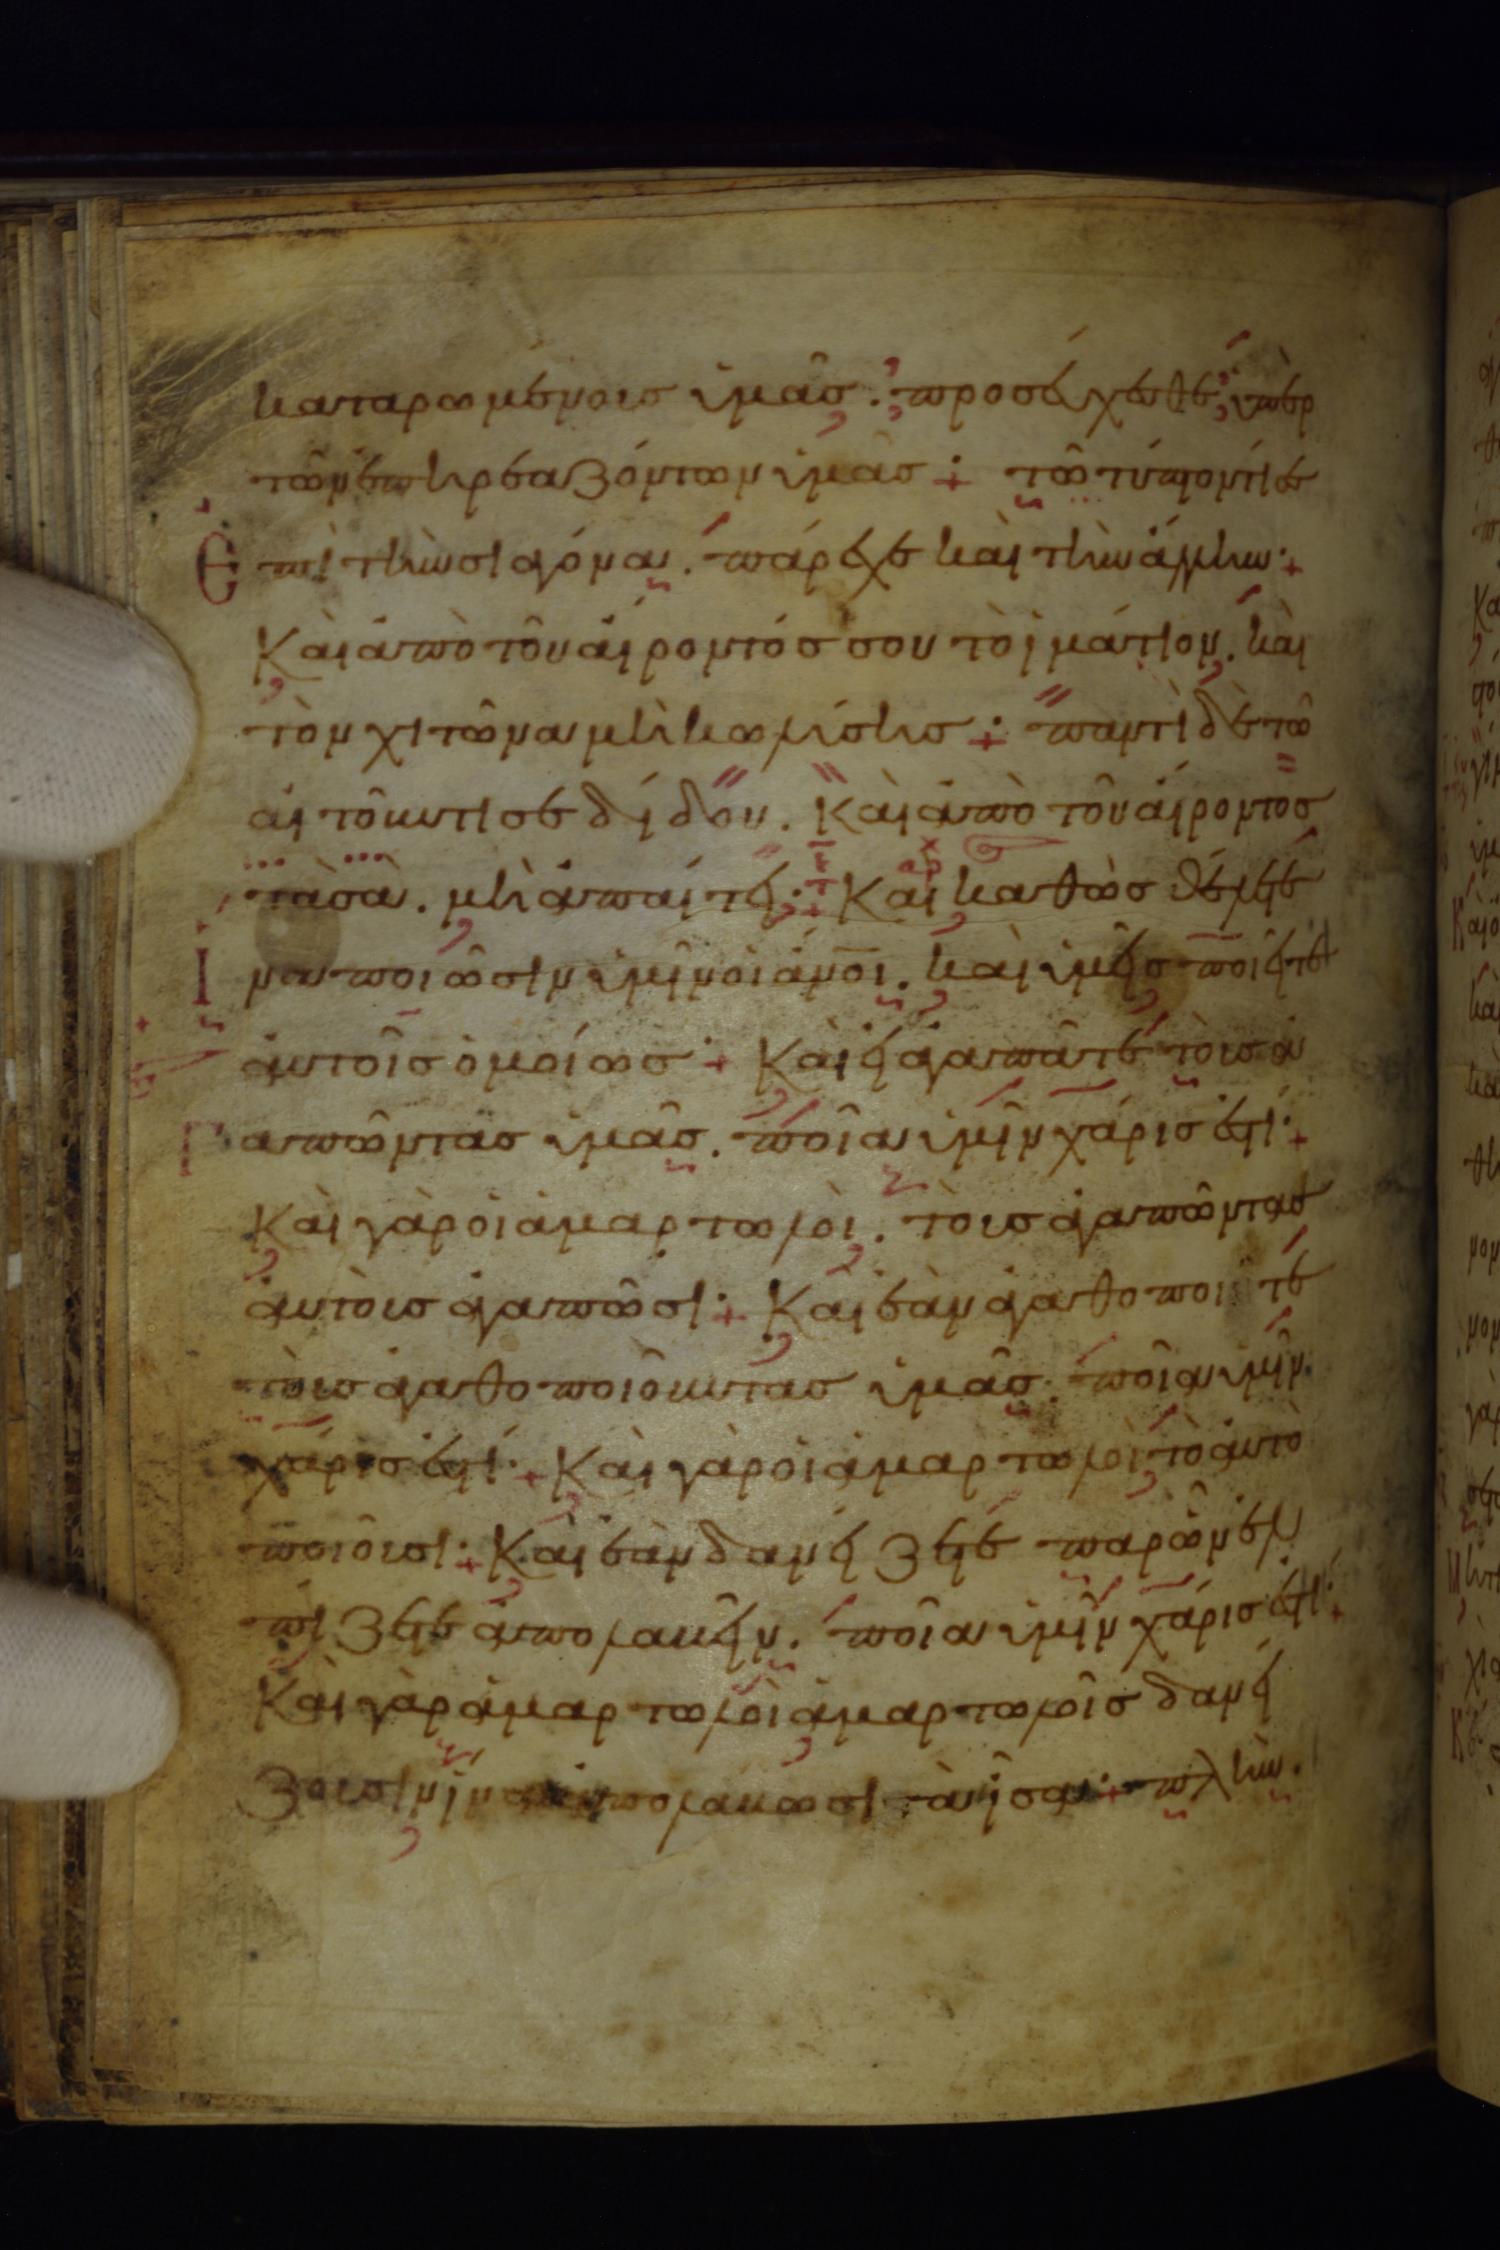 καταρωμένοις ὑμᾶς. προσέυχεσθε ὑπὲρ
τῶν ἐπηρεαζόντων ὑμᾶς· τῶ τύπτοντί σε
Ἐπὶ τὴν σιαγόνα. πάρεχε καὶ τὴν ἄλλην·
Καὶ ἀπὸ τοῦ αἴροντός σου τὸ ἱμάτιον. καὶ
τὸν χιτῶνα μὴ κωλύσης· παντὶ δὲ τῶ
αἰτοῦντί σε δίδου. Καὶ ἀπὸ τοῦ αἴροντος
τὰ σὰ. μὴ ἀπαίτει· Καὶ καθὼς θέλετε
Ἵνα ποιῶσιν ὑμῖν οἱ ἄνοι. καὶ ὑμεῖς ποιεῖτε
ἀυτοῖς ὁμοίως· Καὶ εἰ ἀγαπᾶτε τοὺς ἀ
Γαπῶντας ὑμᾶς. ποῖα ὑμῖν χάρις ἐστί·
Καὶ γὰρ οἱ ἁμαρτωλοὶ. τοὺς ἀγαπῶντας
ἀυτοὺς ἀγαπῶσι· Καὶ ἐὰν ἀγαθοποιῆτε
τοὺς ἀγαθοποιοῦντας ὑμᾶς. ποῖα ὑμῖν
χάρις ἐστί· Καὶ γὰρ οἱ ἁμαρτωλοὶ τὸ ἀυτὸ
ποιοῦσι· Καὶ ἐὰν δανείζητε παρῶν ἐλ
πίζετε ἀπολαβεῖν. ποῖα ὑμῖν χάρις ἐστί·
Καὶ γὰρ ἁμαρτωλοὶ ἁμαρτωλοῖς δανεί
ζουσιν ἵνα ἀπολάβωσι τὰ ἴσα· πλὴν.